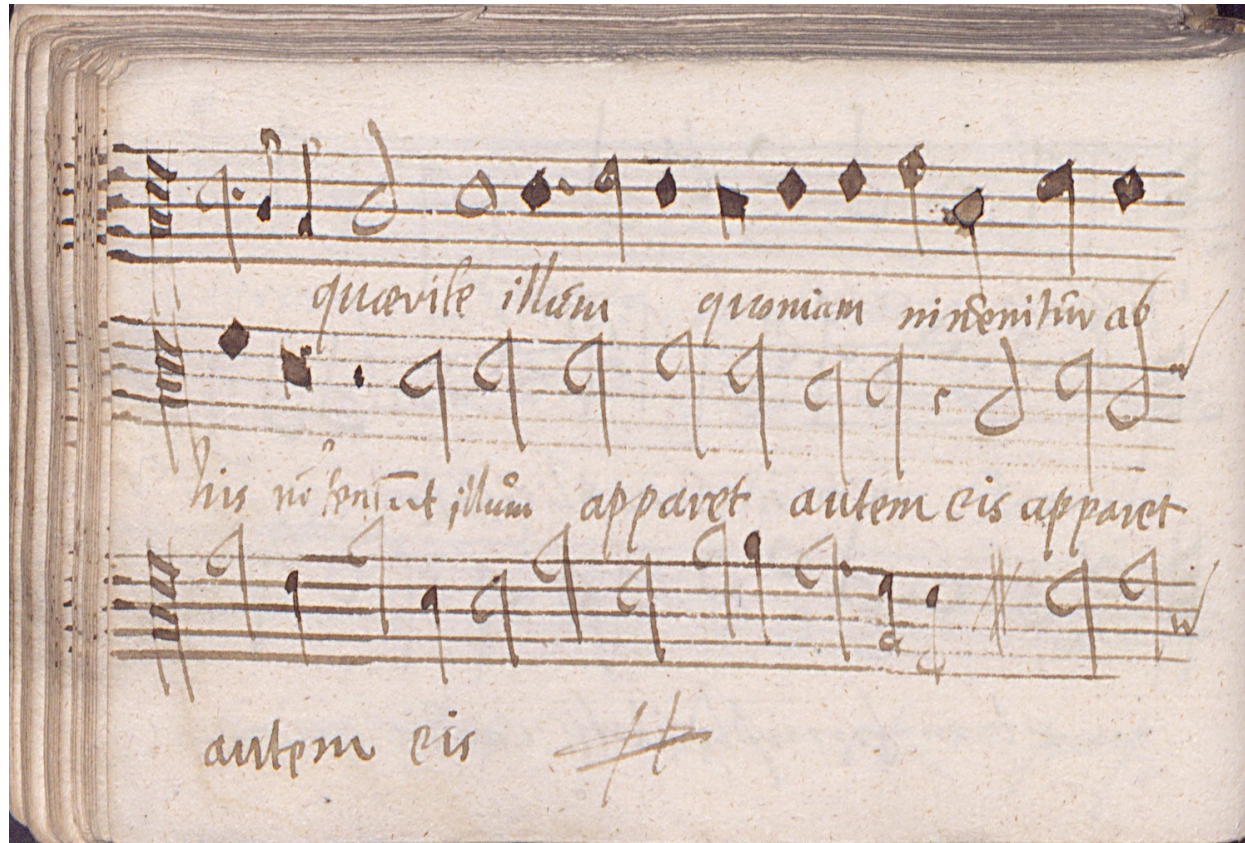 quærite illum quoniam ninvenitur ab
his nō tentāt illum apparet autem eis apparet
autem eis